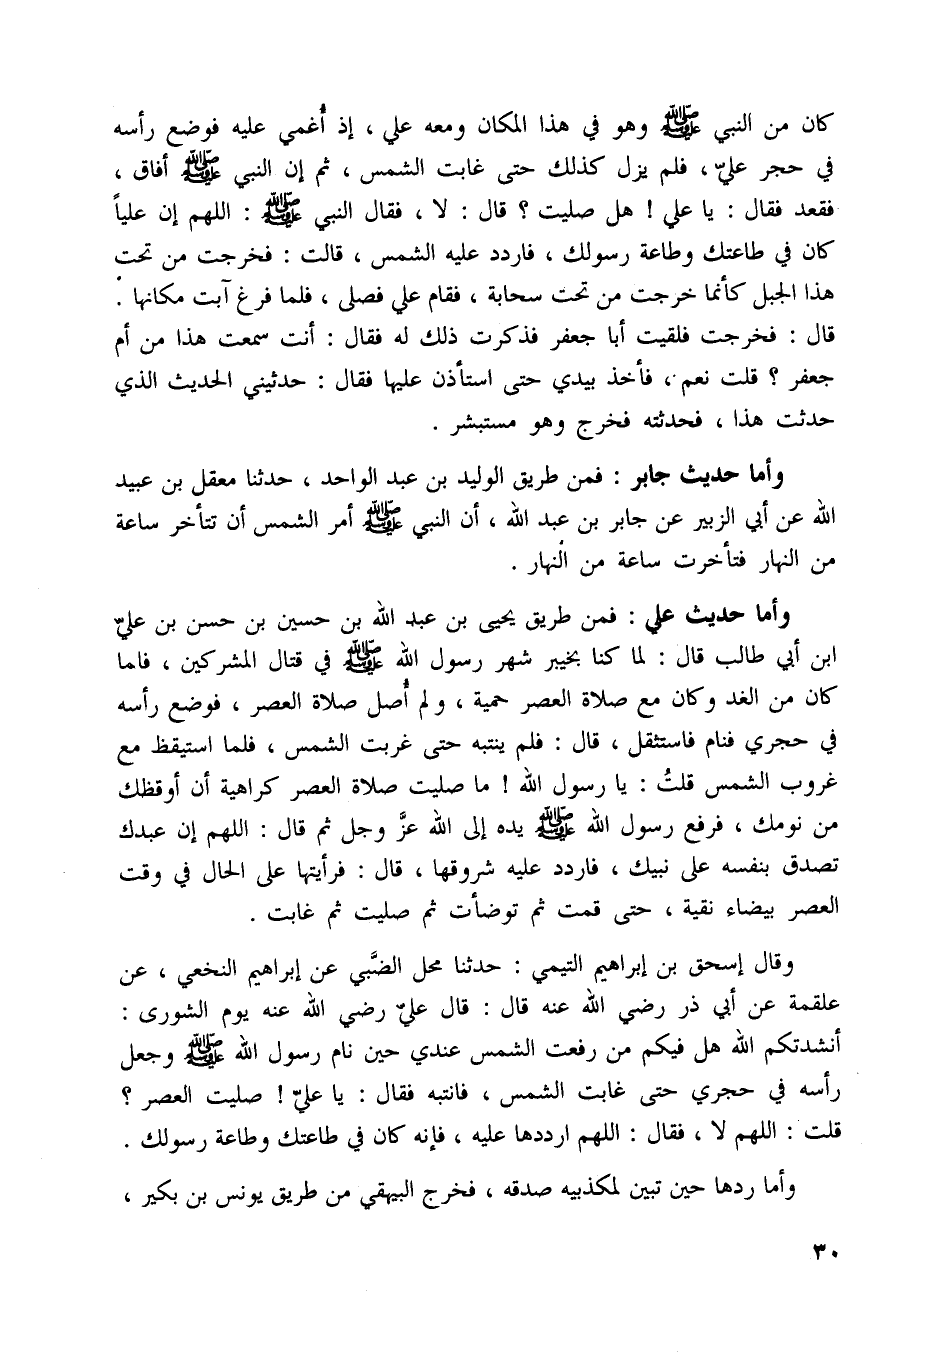 كان من النبي ﷺ وهو في هذا المكان ومعه علي ، إذ أُغمي عليه فوضع رأسه
في حجر عليّ ، فلم يزل كذلك حتى غابت الشمس ، ثم إن النبي ﷺ أفاق ،
فقعد فقال : يا علي ! هل صليت ؟ قال : لا ، فقال النبي ﷺ : اللهم إن علياً
كان في طاعتك وطاعة رسولك ، فاردد عليه الشمس ، قالت : فخرجت من تحت
هذا الجبل كأنما خرجت من تحت سحابة ، فقام علي فصلى ، فلما فرغ آبت مكانها .
قال : فخرجت فلقيت أبا جعفر فذكرت ذلك له فقال : أنت سمعت هذا من أم
جعفر ؟ قلت نعم ، فأخذ بيدي حتى استأذن عليها فقال : حدثيني الحديث الذي
حدثت هذا ، فحدثته فخرج وهو مستبشر .
وأما حديث جابر : فمن طريق الوليد بن عبد الواحد ، حدثنا معقل بن عبيد
الله عن أبي الزبير عن جابر بن عبد الله ، أن النبي ﷺ أمر الشمس أن تتأخر ساعة
من النهار فتأخرت ساعة من النهار .
وأما حديث علي : فمن طريق يحيى بن عبد الله بن حسين بن حسن بن عليّ
ابن أبي طالب قال : لما كنا بخيبر شهر رسول الله ﷺ في قتال المشركين ، فلما
كان من الغد وكان مع صلاة العصر حمية ، ولم أُصل صلاة العصر ، فوضع رأسه
في حجري فنام فاستثقل ، قال : فلم ينتبه حتى غربت الشمس ، فلما استيقظ مع
غروب الشمس قلتُ : يا رسول الله ! ما صليت صلاة العصر كراهية أن أوقظك
من نومك ، فرفع رسول الله ﷺ يده إلى الله عزَّ وجل ثم قال : اللهم إن عبدك
تصدق بنفسه على نبيك ، فاردد عليه شروقها ، قال : فرأيتها على الحال في وقت
العصر بيضاء نقية ، حتى قمت ثم توضأت ثم صليت ثم غابت .
وقال إسحق بن إبراهيم التيمي : حدثنا محل الضَّبي عن إبراهيم النخعي ، عن
علقمة عن أبي ذر رضي الله عنه قال : قال عليّ رضي الله عنه يوم الشورى :
أنشدتكم الله هل فيكم من رفعت الشمس عندي حين نام رسول الله ﷺ وجعل
رأسه في حجري حتى غابت الشمس ، فانتبه فقال : يا عليّ ! صليت العصر ؟
قلت : اللهم لا ، فقال : اللهم ارددها عليه ، فإنه كان في طاعتك وطاعة رسولك .
وأما ردها حين تبين لمكذبيه صدقه ، فخرج البيهقي من طريق يونس بن بكير ،
٣٠